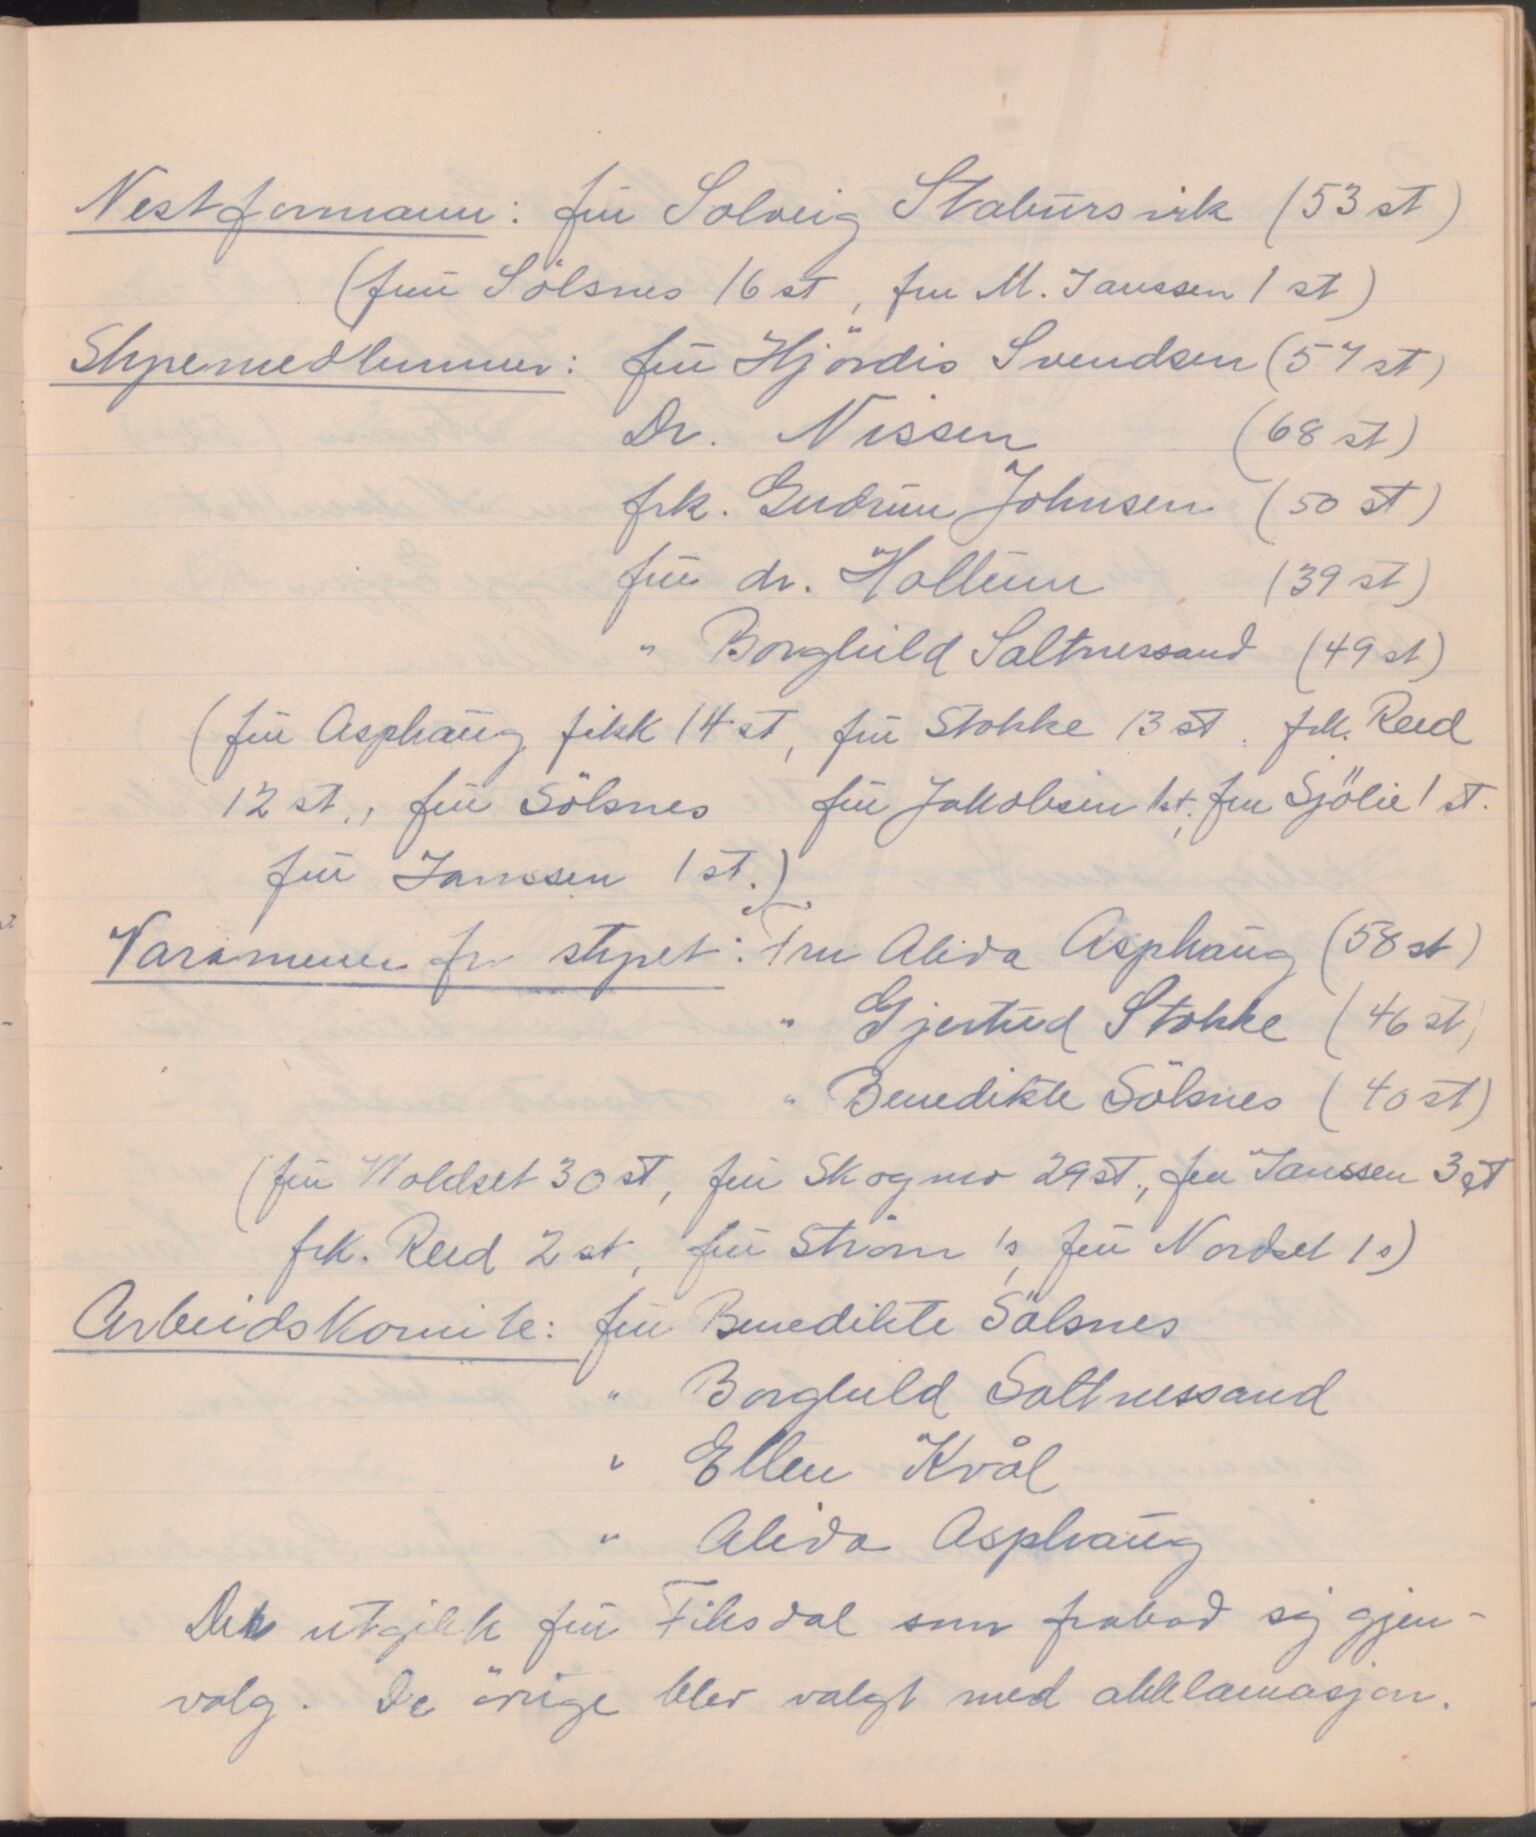 Nestformann: frú Solveig Stabursvik (53 st)
(frú Sölsnes 16 st, fru M. Janssen 1 st)
Styremedlemmer: frú Hjördis Svendsen (57 st)
Dr. Nissen (68 st)
frk. Gudrun Johnsen (50 st)
frú dr. Holtum (39 st)
" Borghild Saltnessand (49 st)
(frú Asphaug fikk 14 st, frú Stokke 13 st, frk. Reed
12 st., frú Sölsnes frú Jakobsen 1st, fru Sjölie 1 st.
frú Janssen 1 st.)
Varamenn for styret: Fru Alida Asphaug (58 st)
" Gjertrud Stokke (46 st)
" Benedikte Sölsnes (40 st)
(frú Moldset 30 st, frú Skogmo 29 st., fru Janssen 3 st
frk. Reed 2 st, frú Ström 1 s, frú Nordset 1 s)
Arbeidskomite: frú Benedikte Sölsnes
" Borghild Saltnessand
" Ellen Kvål
" Alida Asphaug
Der utgikk frú Fiksdal som frabad sig gjen-
valg. De örige blev valgt med akklamasjon.